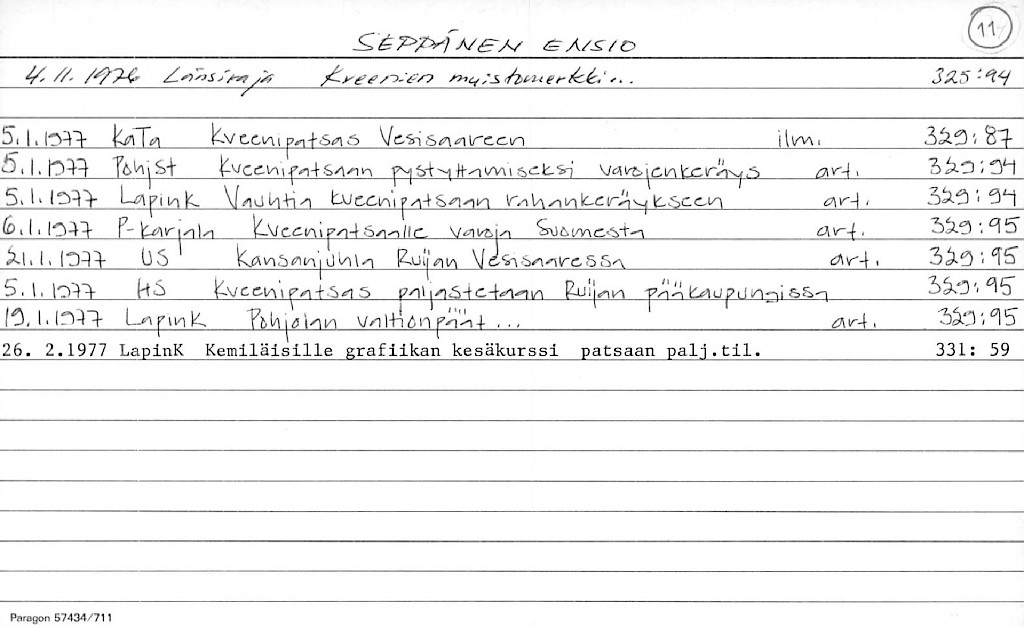 11
SEPPÄNEN ENSIO
4.11.1976 Länsiraja Kveenien muistomerkki... 325:94
5.1.1977 KaTa Kveenipatsas Vesisaareen ilm. 329:87
5.1.1977 Pohjst Kveenipatsaan pystyttämiseksi varojenkeräys art. 329:94
5.1.1977 LapinK Vauhtia kveenipatsaan rahankeräykseen art. 329:94
6.1.1977 P-Karjala Kveenipatsaalle varoja Suomesta art. 329:95
21.1.1977 US Kansanjuhla Ruijan Vesisaaressa art. 329:95
5.1.1977 HS Kveenipatsas paljastetaan Ruijan pääkaupungissa 329:95
19.1.1977 LapinK Pohjolan valtionpäät... art. 329:95
26. 2.1977 LapinK Kemiläisille grafiikan kesäkurssi patsaan palj.til. 331: 59
Paragon 57434/711